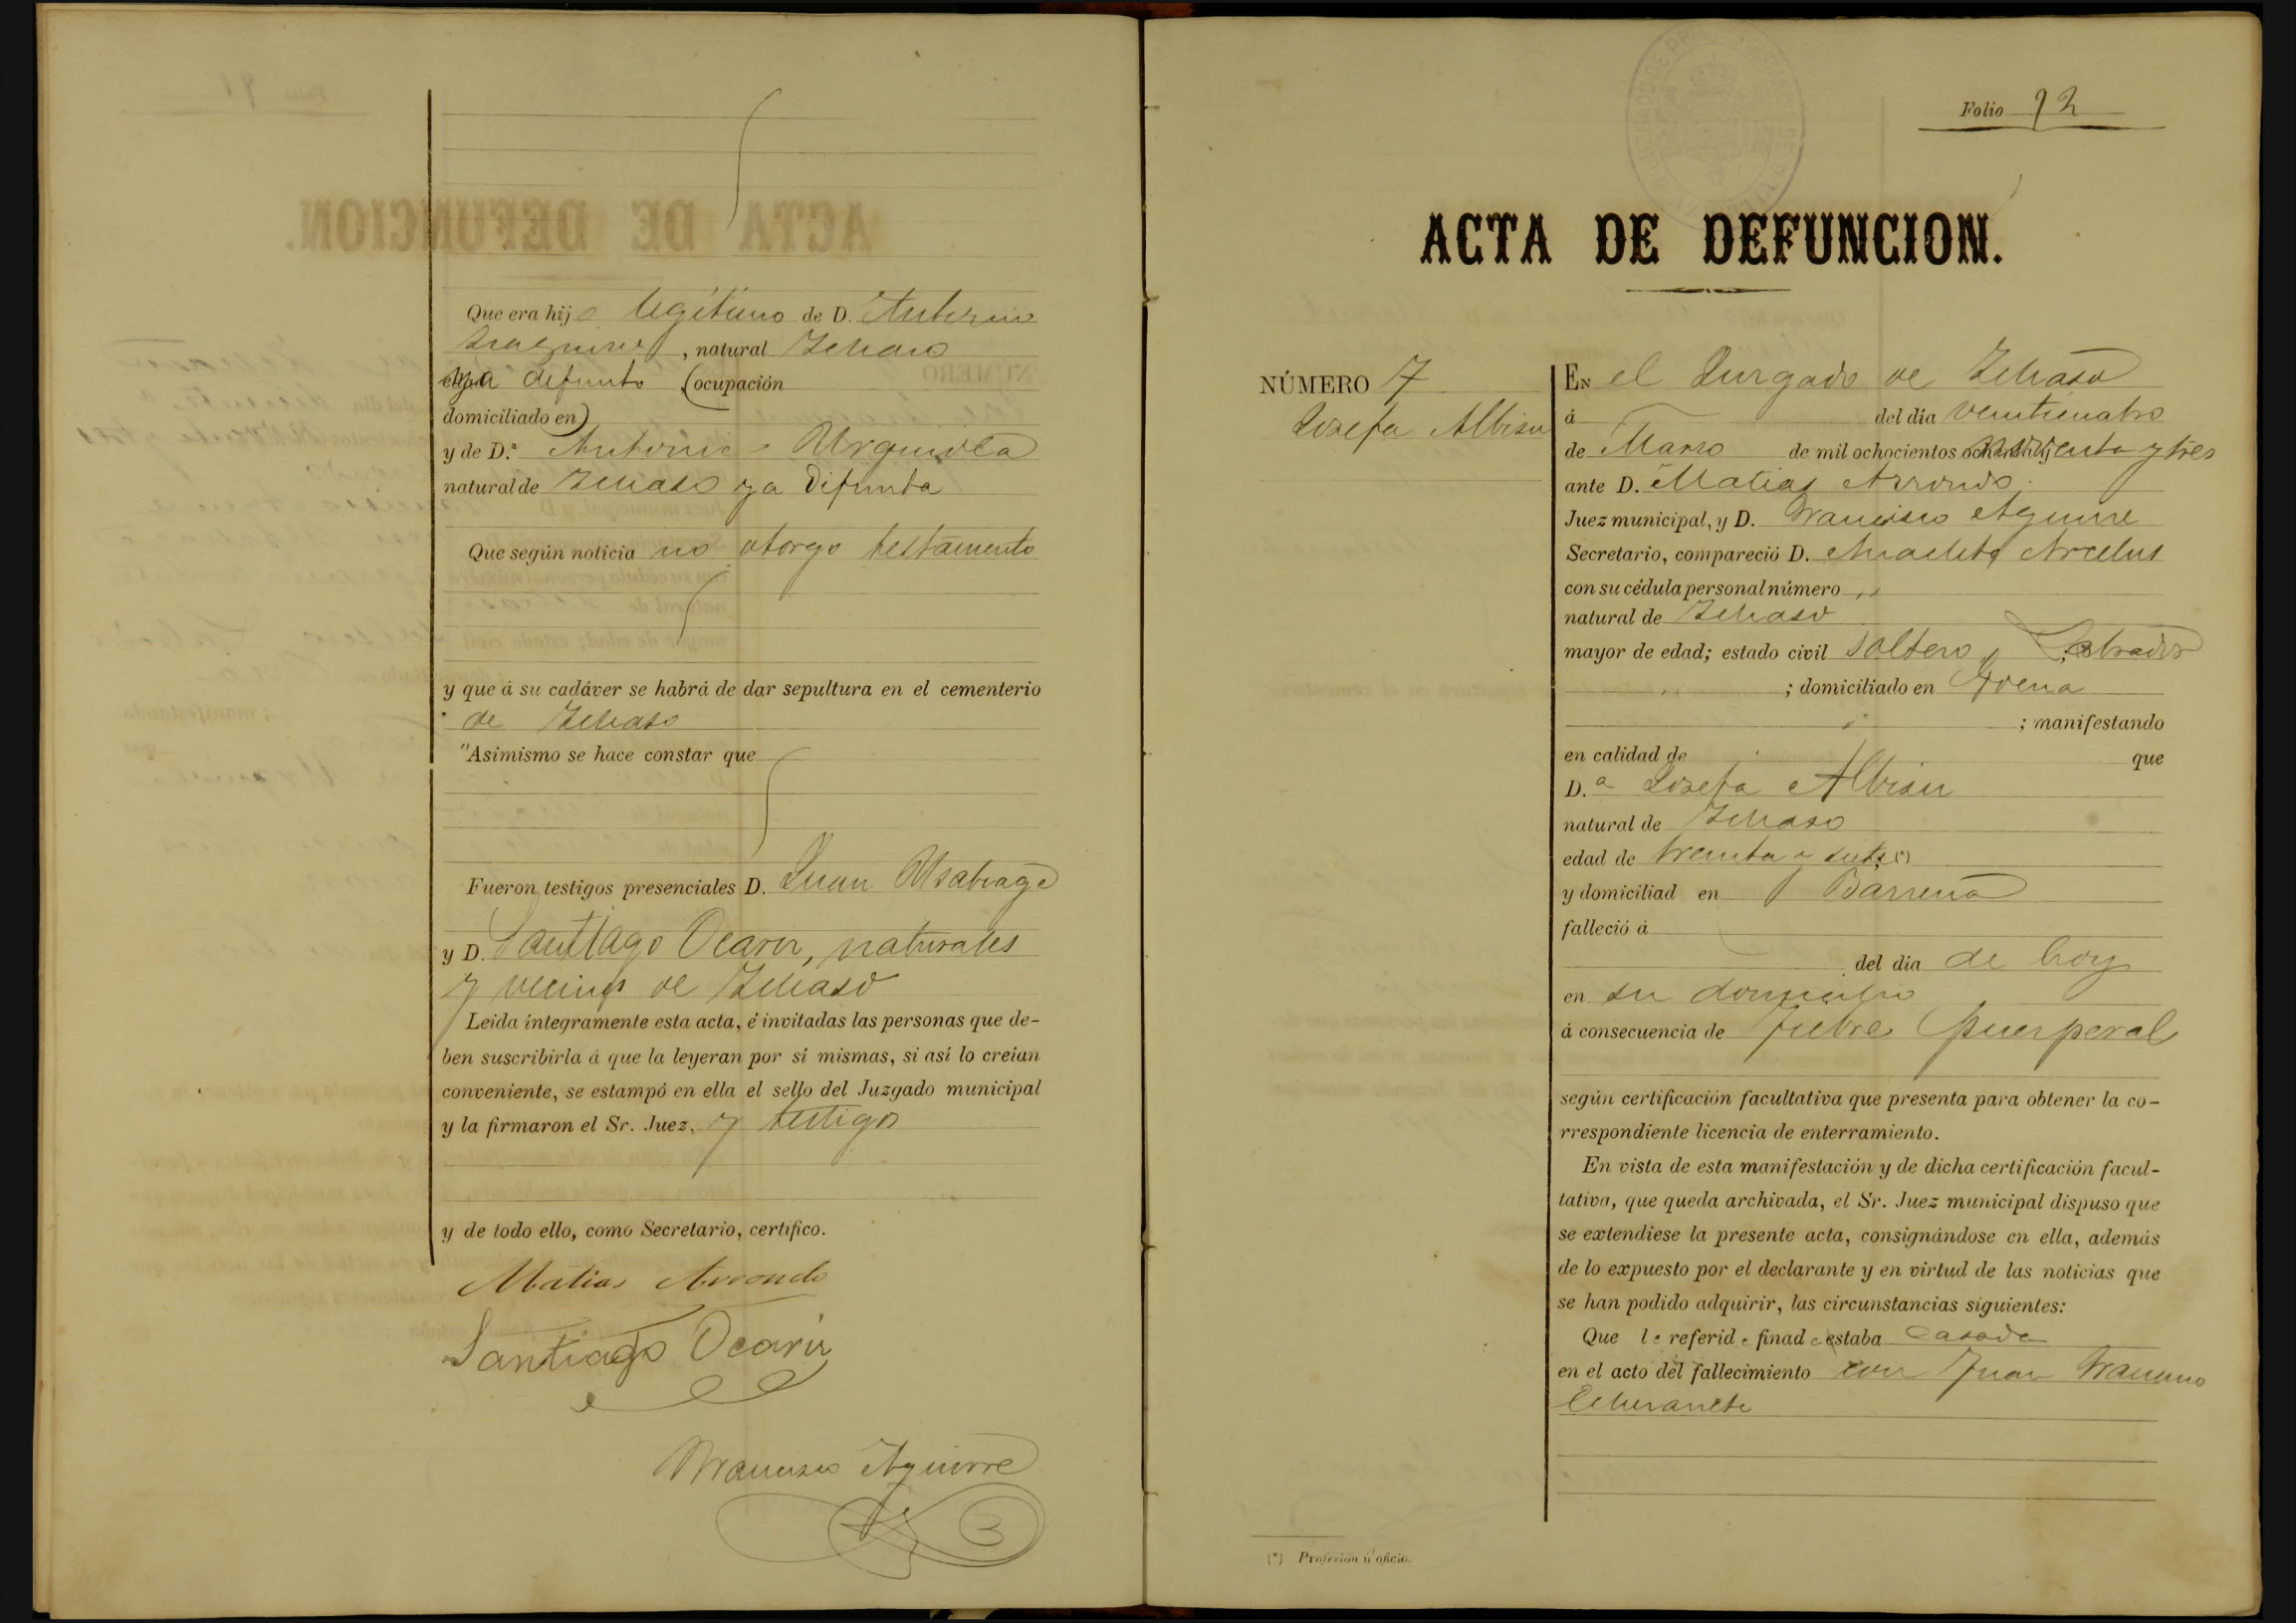 Que era hijo legítimo de D. Antonio
, natural Ichaso
ya defunto (ocupación
domiciliado en)
y de D.ª Antonia Urquiola
natural de Ichaso ya difunta
Que según noticia no otorgo testamento
y que á su cadáver se habrá de dar sepultura en el cementerio
de Ichaso
"Asimismo se hace constar que
Fueron testigos presenciales D. Juan Usabiaga
y D. Santiago Ocariz, naturales
y vecinos de Ichaso
Leida íntegramente esta acta, é invitadas las personas que de-
ben suscribirla á que la leyeran por sí mismas, si así lo creían
conveniente, se estampó en ella el sello del Juzgado municipal
y la firmaron el Sr. Juez, y testigos
y de todo ello, como Secretario, certifico.
Matias Arrondo
Santiago Ocariz
Francisco Aguirre
Folio 92
ACTA DE DEFUNCION.
NÚMERO 7
Josefa Albisu
En el Jurgado de Ichaso
á del día veinticuatro
de Marzo de mil ochocientos noventa y tres
ante D. Matias Arrondo
Juez municipal, y D. Francisco Aguirre
Secretario, compareció D. Anacleto Arcelus
con su cédula personal número ,,
natural de Ichaso
mayor de edad; estado civil soltero, Labrador
; domiciliado en
; manifestando
en calidad de que
D.ª Josefa Albisu
natural de Ichaso
edad de treinta y siete (*)
y domiciliad en Barrena
falleció á
del dia de hoy
en su domicilio
á consecuencia de Fiebre puerperal
según certificación facultativa que presenta para obtener la co-
rrespondiente licencia de enterramiento.
En vista de esta manifestación y de dicha certificación facul-
tativa, que queda archivada, el Sr. Juez municipal dispuso que
se extendiese la presente acta, consignándose en ella, además
de lo expuesto por el declarante y en virtud de las noticias que
se han podido adquirir, las circunstancias siguientes:
Que la referida finada estaba casada
en el acto del fallecimiento con Juan Francisco
(*) Profesión ú oficio.